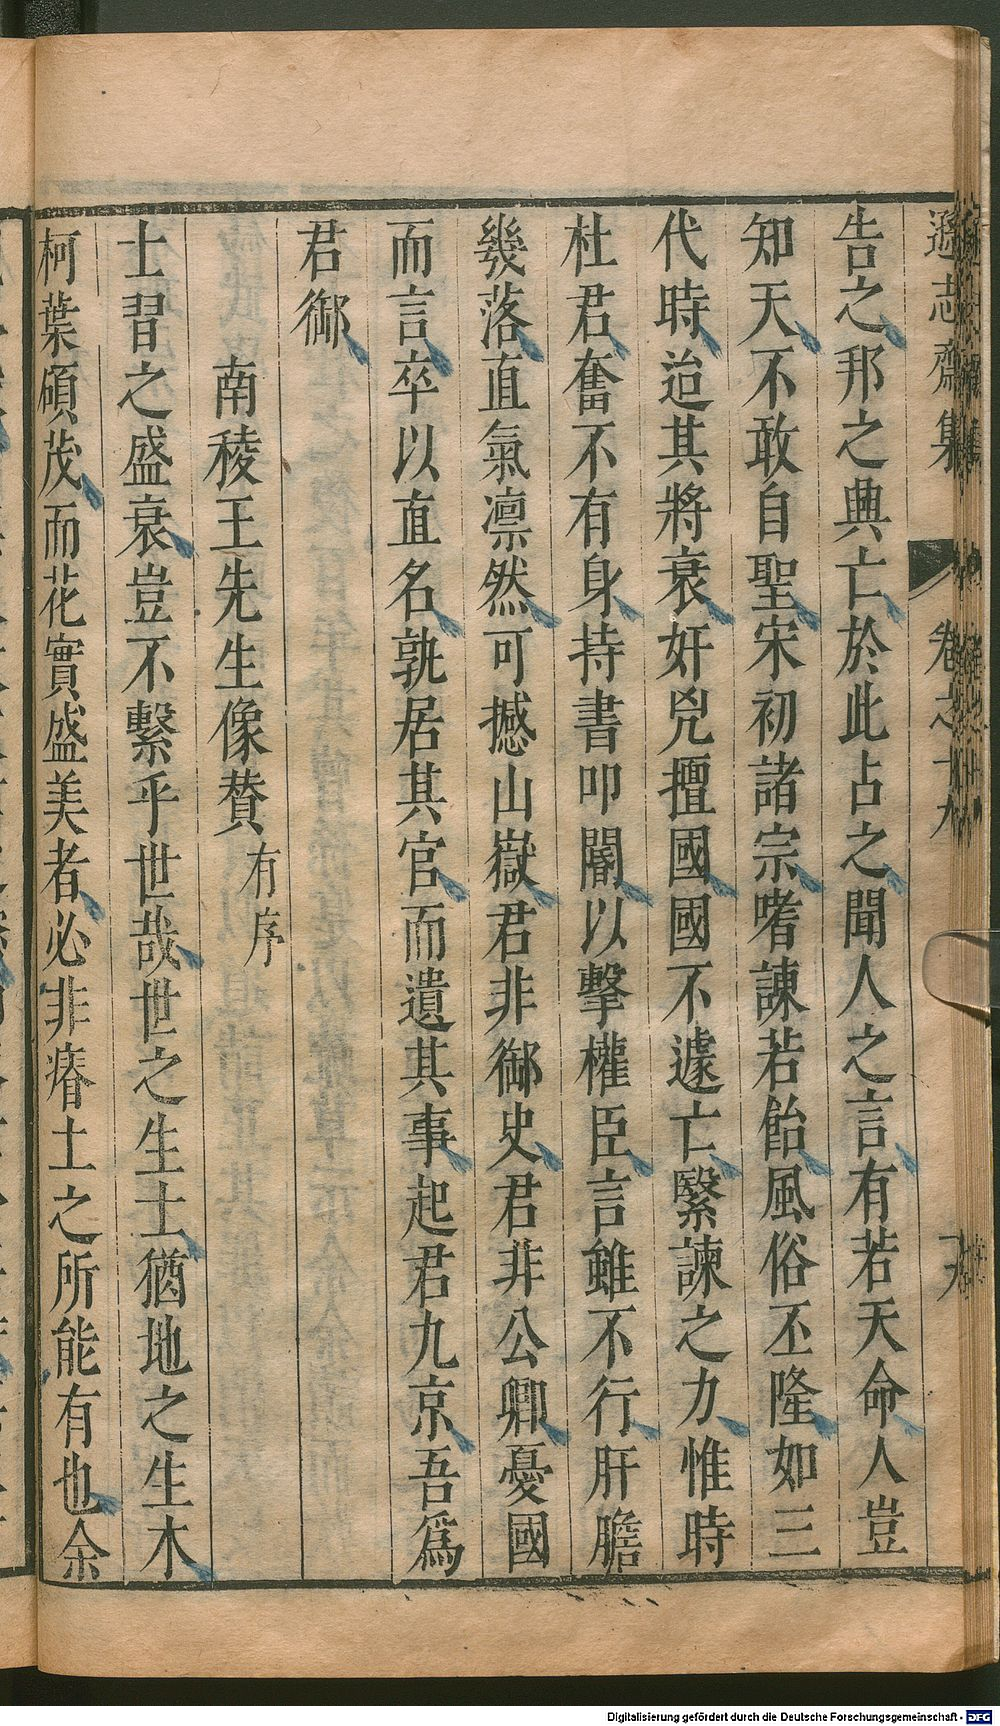 遜志齋集 卷之十九
告之邦之興亡於此占之聞人之言有若天命人豈
知天不敢自聖宋初諸宗嗜諫若飴風俗丕隆如三
代時迨其將衰奸兇擅國國不遽亡繄諫之力惟時
杜君奮不有身持書叩閽以擊權臣言雖不行肝膽
幾落直氣凛然可撼山嶽君非御史君非公卿憂國
而言卒以直名孰居其官而遺其事起君九京吾爲
君御
南稜王先生像贊有序
士習之盛衰豈不繫乎世哉世之生士猶地之生木
柯葉碩茂而花實盛美者必非瘠土之所能有也余
Digitalisierung gefördert durch die Deutsche Forschungsgemeinschaft - DFG